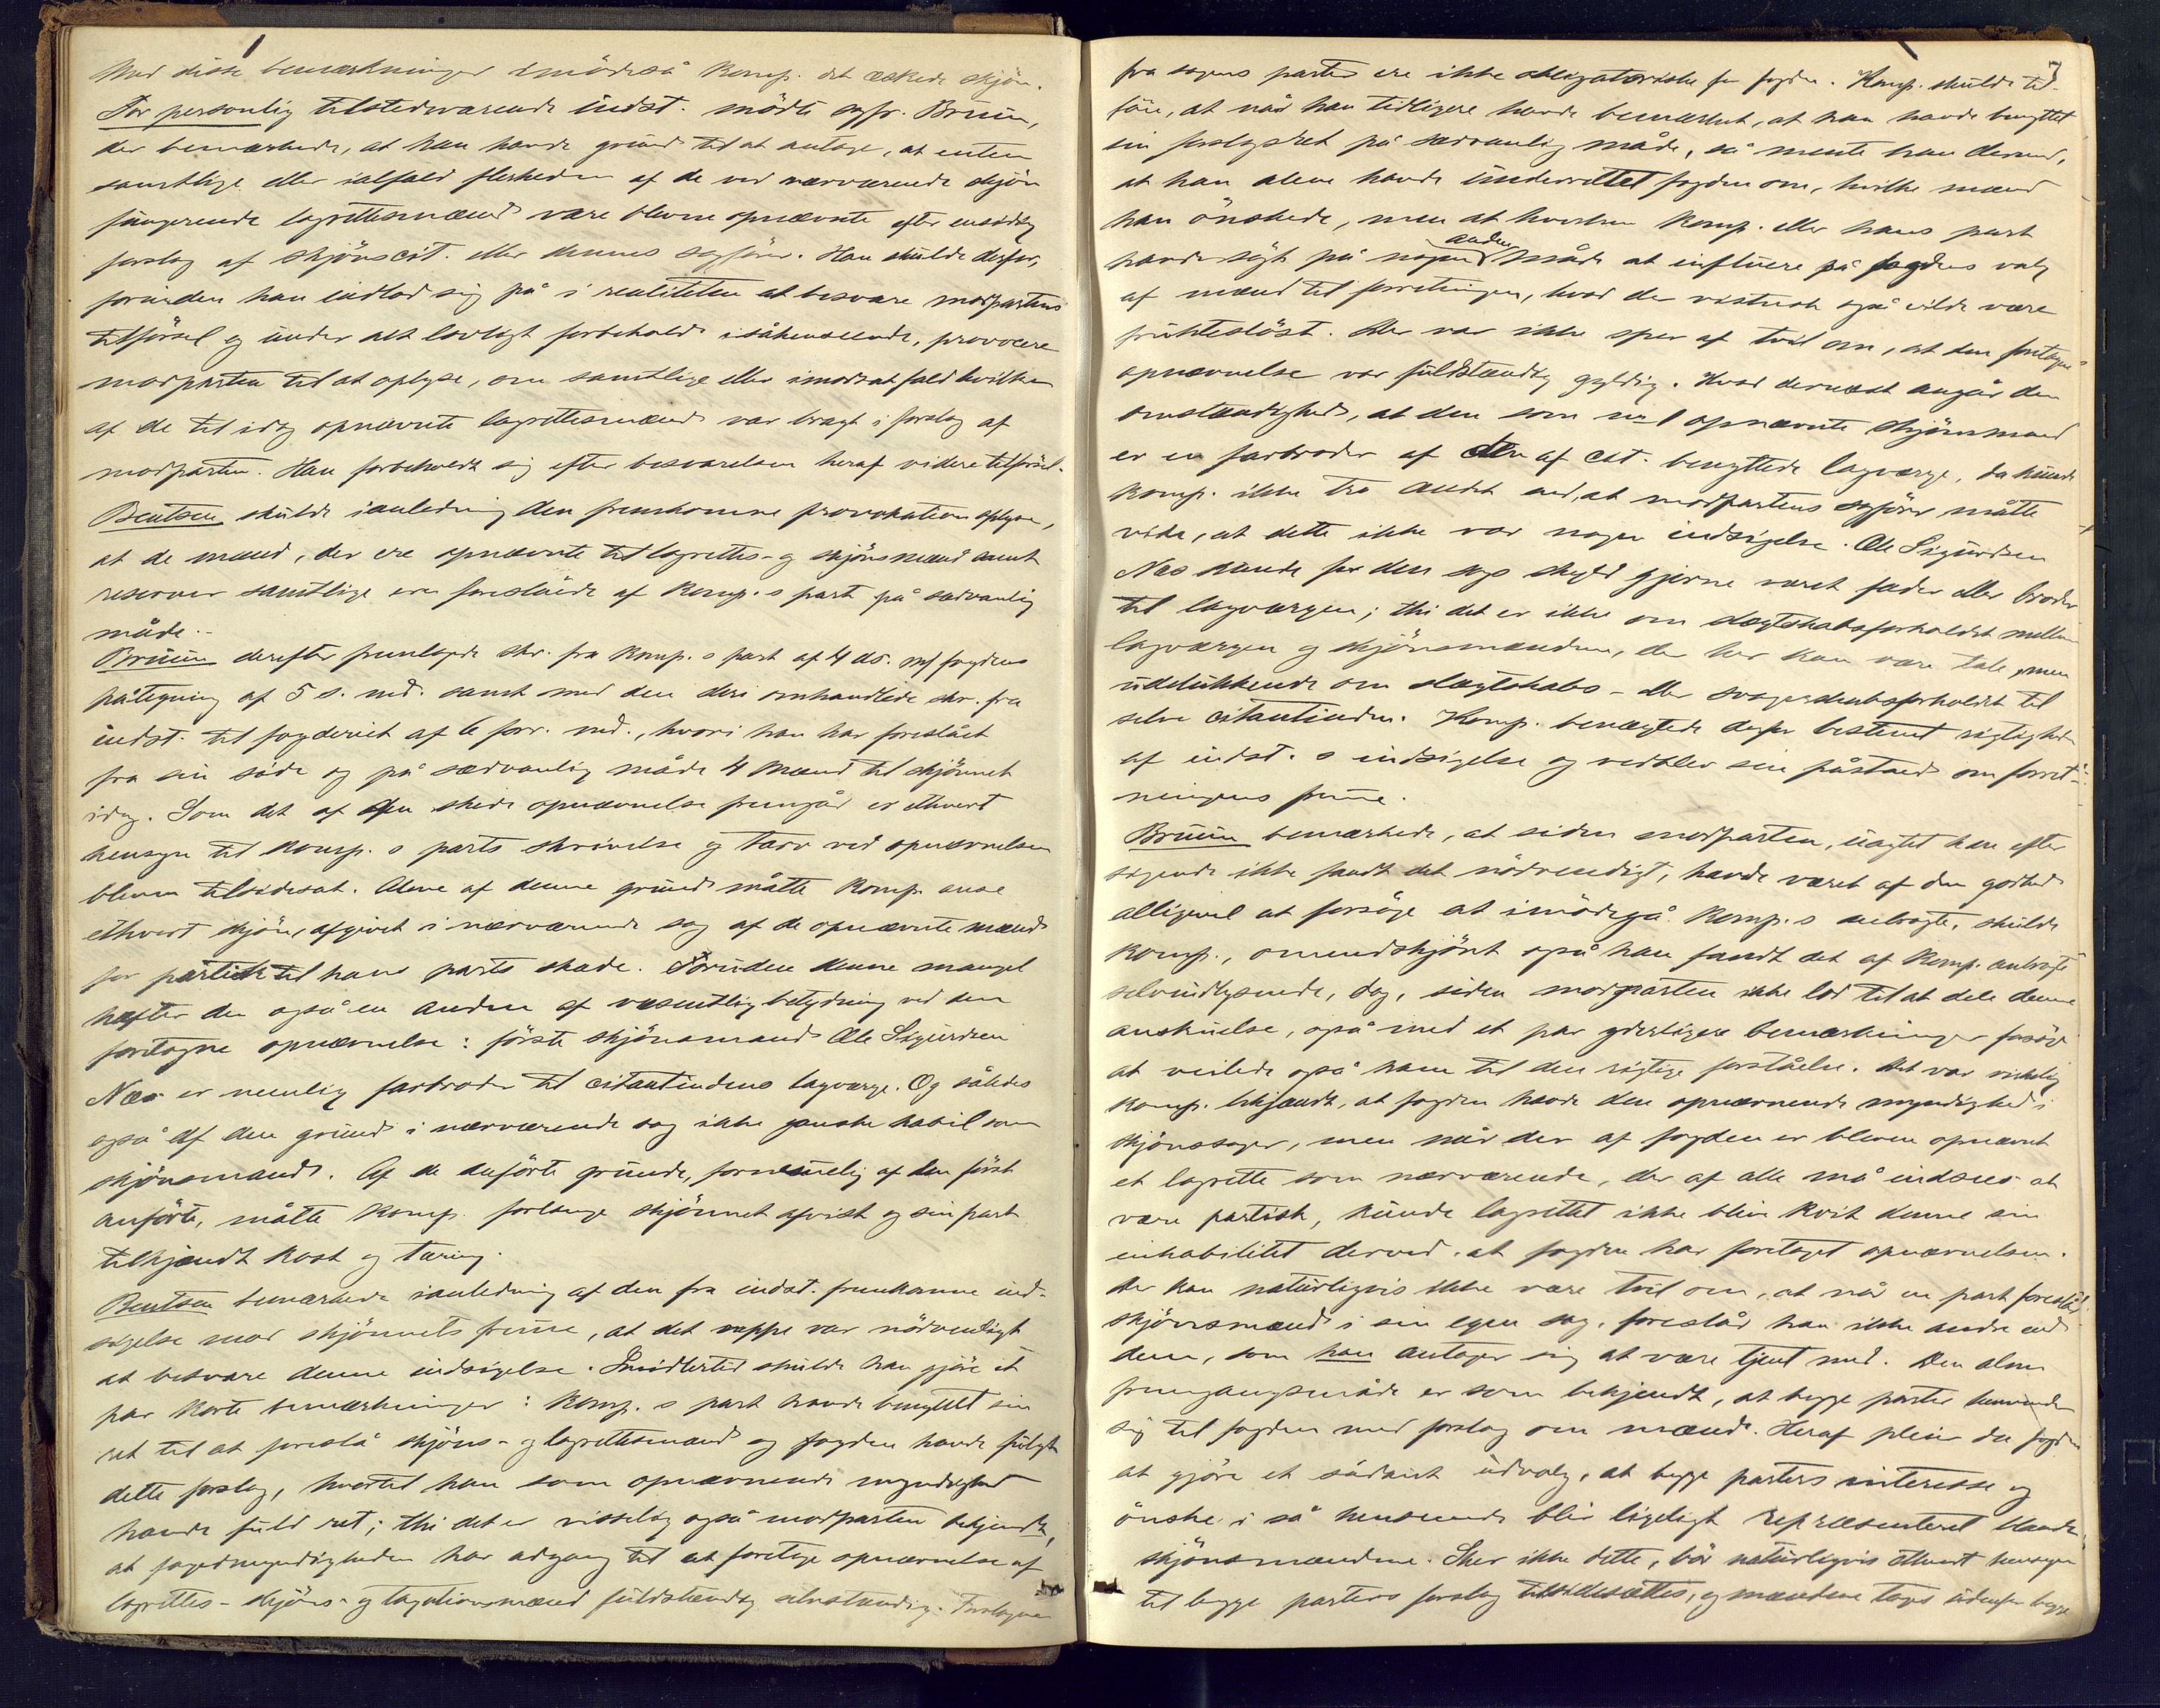 Med disse bemærkninger imödeså Komp. det æskede skjön.
For personlig tilstedeværende indst. mödte sgfr. Bruun,
der bemærkede, at han havde grund til at antage, at enten
samtlige eller ialfald flerheden af de ved nærværende skjön
fungerende lagrettesmænd være blevne opnævnte efter ensidig
forslag af skjönscit. eller dennes sagförer. Han skulde derfor,
forinden han indlod sig på i realiteten at besvare modpartens
tilförsel og under alt lovligt forbehold isåhenseende, provocere
modparten til at oplyse, om samtlige eller imodsat fald hvilken
af de til idag opnævnte lagrettesmænd var bragt i forslag af
modparten. Han forbeholdt sig efter besvarelsen heraf videre tilförsel.
Bentsen skulde ianledning den fremkomne provokation oplyse,
at de mænd, der ere opnævnte til lagrettes- og skjönsmænd samt
reserver samtlige ere foreslåede af Komp.s part på sædvanlig
måde.-
Bruun derefter fremlagde skr. fra Komp.s part af 4 ds. m/ fogdens
påtegning af 5 s. md. samt med den deri omhandlede skr. fra
indst. til fogderiet af 6 forr. md., hvori han har foreslået
fra sin side og på sædvanlig måde 4 mænd til skjönnet
idag. Som det af den skede opnævnelse fremgår er ethvert
hensyn til Komp.s parts skrivelse og tarv ved opnævnelsen
bleven tilsidesat. Alene af denne grund måtte Komp. anse
ethvert skjön, afgivet i nærværende sag af de opnævnte mænd
for partisk til hans parts skade. Foruden denne mangel
hefter der også en anden af væsentlig betydning ved den
foretagne opnævnelse: förste skjönsmand Ole Sigurdsen
Næs er nemlig farbroder til citantindens lagværge. Og således
også af den grund i nærværende sag ikke ganske habil som
skjönsmand. Af de anförte grunde, fornemelig af den först
anförte, måtte Komp. forlange skjönnet afvist og sin part
tilkjendt kost og tæring.
Bentsen bemærkede ianledning af den fra indst. fremkomne ind-
sigelse mod skjönnets fremme, at det neppe var nödvendigt
at besvare denne indsigelse. Imidlertid skulde han gjöre et
par korte bemærkninger: Komp.s part havde benyttet sin
ret til at foreslå skjöns- og lagrettesmænd og fogden havde fulgt
dette forslag, hvortil han som opnævnende myndighed
havde fuld ret; thi det er visselig også modparten bekjendt,
at fogedmyndigheden har adgang til at foretage opnævnelse af
lagrettes- skjöns- og taxationsmænd fuldstændig selvstændig. Forslagene
fra sagens parter ere ikke obligatoriske for fogden. Komp. skulde til-
föie, at når han tidligere havde bemærket, at han havde benyttet
sin forslagsret på sædvanlig måde, så mente han dermed,
at han alene havde underrettet fogden om, hvilke mænd
han önskede, men at hverken Komp. eller hans part
havde sögt på nogen anden måde at influere på fogdens valg
af mænd til forretningen, hvad der vistnok også vilde være
frukteslöst. Der var ikke spor af tvil om, at den foretagne
opnævnelse var fuldstændig gyldig. Hvad dernæst angår den
omstændighed, at den som no 1 opnævnte skjönsmand
er en farbroder af den af cit. benyttede lagværge, da kunde
Komp. ikke tro andet end, at modpartens sagförer måtte
vide, at dette ikke var nogen indsigelse. Ole Sigurdsen
Næs kunde for den sags skyld gjerne været fader eller broder
til lagværgen; thi det er ikke om slægtskabsforholdet mellem
lagværgen og skjönsmændene, der her kan være tale, men
udelukkende om slægtskabs- eller svogerskabsforholdet til
selve citantinden. Komp. benægtede derfor bestemt rigtigheden
af indst.s indsigelse og vedblev sin påstand om forret-
ningens fremme.
Bruun bemærkede, at siden modparten, uagtet han efter
sigende ikke fandt det nödvendigt, havde været af den godhed
alligevel at forsöge at imödegå Komp.s anbragte, skulde
Komp., omendskjönt også han fandt det af Komp. anbragte
selvindlysende, dog, siden modparten ikke lod til at dele denne
anskuelse, også med et par yderligere bemærkninger forsöge
at veilede også ham til den rigtige forståelse. Det var virkelig
Komp. bekjendt, at fogden havde den opnævnende myndighed i
skjönssager, men når der af fogden er bleven opnævnt
et lagrette som nærværende, der af alle må indsees at
være partisk, kunde lagrettet ikke blive kvit denne sin
inhabilitet derved, at fogden har foretaget opnævnelsen.
Der kan naturligvis ikke være tvil om, at når en part foreslår
skjönsmænd i sin egen sag, foreslår han ikke andre end
dem, som han antager sig at være tjent med. Den alm.
fremgangsmåde er som bekjendt, at begge parter henvender
sig til fogden med forslag om mænd. Heraf pleier da fogden
at gjöre et sådant udvalg, at begge parters interesse og
önske i så henseende blir ligeligt repræsenteret blandt
skjönsmændene. Sker ikke dette, bör naturligvis ethvert hensyn
til begge parters forslag tilsidesættes, og mændene tages udenfor begge